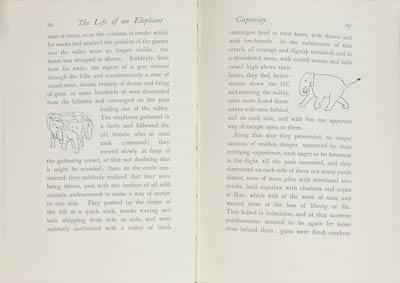 66 The Life of an Elephant
man or beast, even the columns of smoke which
for weeks had marked the position of the passes
into the valley were no longer visible; the
forest was wrapped in silence. Suddenly, fired
from far away, the report of a gun echoed
through the hills, and simultaneously a roar of
sound arose, shouts, beating of drums and firing
of guns, as some hundreds of men descended
from the hillsides and converged on the pass
leading out of the valley.
The elephants gathered in
a body and followed the
old female, who at once
took command; they
moved slowly in front of
the gathering crowd, at first not doubting that
it might be avoided; then, as the circle con-
stricted, they suddenly realized that they were
being driven, and, with the instinct of all wild
animals, endeavoured to make a way of escape
to one side. They pushed up the slopes of
the hill at a quick walk, trunks waving and
tails whipping from side to side, and were
suddenly confronted with a volley of blank
Captivity 67
cartridges fired in their faces, with shouts and
with fire-brands. In the suddenness of this
attack, all courage and dignity vanished, and in
a disordered mass, with curled trunks and tails
raised high above their
backs, they fled, helter-
skelter down the hill,
and entering the valley,
once more found them-
selves with men behind,
and on each side, and with but one apparent
way of escape open to them.
Along that way they proceeded, no longer
cautious of sudden danger, unnerved by their
terrifying experience, each eager to be foremost
in the flight, till the path narrowed, and they
discovered on each side of them not many yards
distant, rows of stout piles with interlaced tree
trunks, held together with climbers and ropes
of fibre, which told of the work of man, and
warned them of the loss of liberty or life.
They halted in indecision, and at that moment
pandemonium seemed to be again let loose
than behind them; guns were fired, crackers